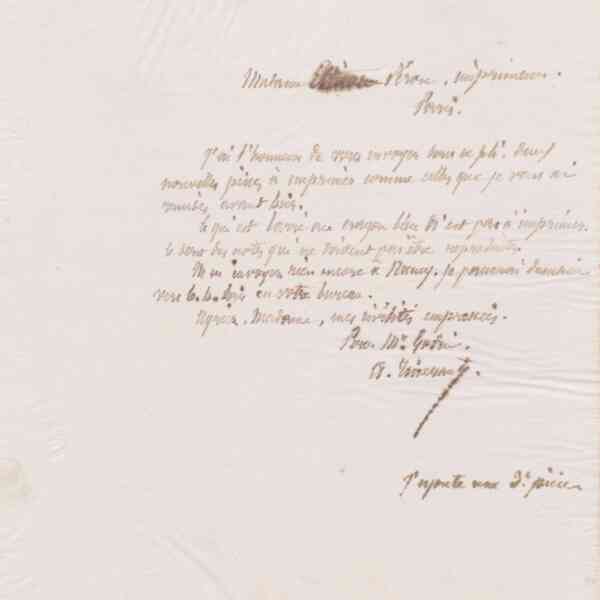 Madame Véron, imprimeur.
Paris.
J'ai l'honneur de vous envoyer sous ce pli deux
nouvelles pièces à imprimer comme celles que je vous ai
avant hier.
Ce qui est barré au crayon bleu n'est pas à imprimer.
Ce sont des notes qui ne doivent pas être reproduites.
N'en envoyez rien encore à Nancy. Je passerai demain
vers en votre bureau.
Agréez, Madame, mes civilités empressées.
Pour Mr Godin.
J'ajoute une 3e pièce